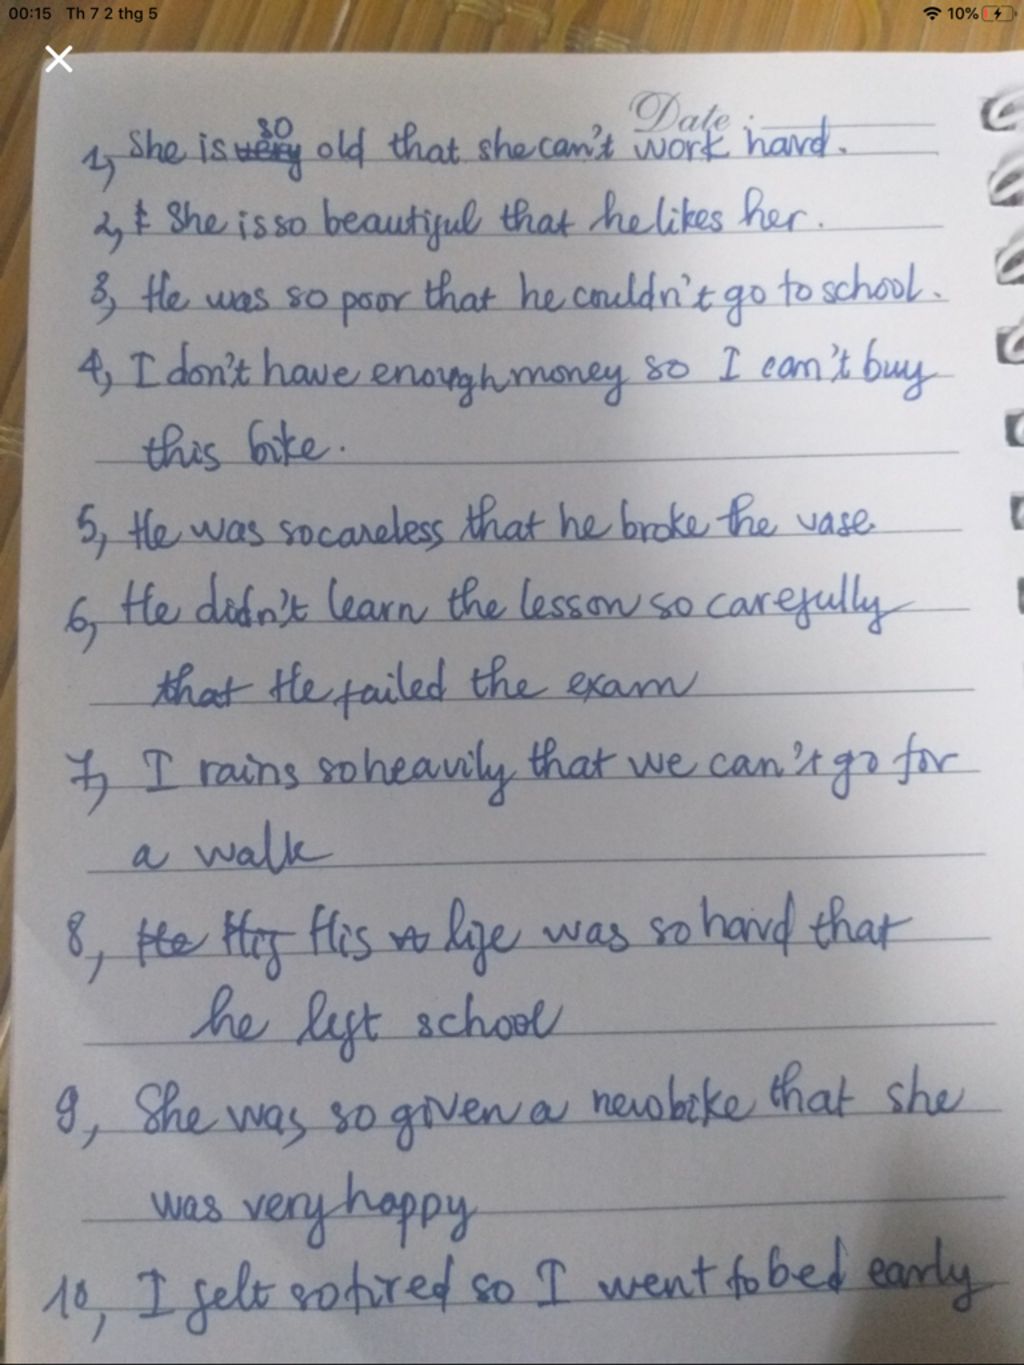 00:15 Th 7 2 thg 5 10%
Date :
1, She is very so old that she can't work hard.
2, & She is so beautiful that he likes her.
3, He was so poor that he couldn't go to school.
4, I don't have enough money so I can't buy
this bike.
5, He was so careless that he broke the vase
6, He didn't learn the lesson so carefully
that He failed the exam
7, I rains so heavily that we can't go for
a walk
8, He His His life was so hard that
he left school
9, She was so given a new bike that she
was very happy
10, I felt so tired so I went to bed early